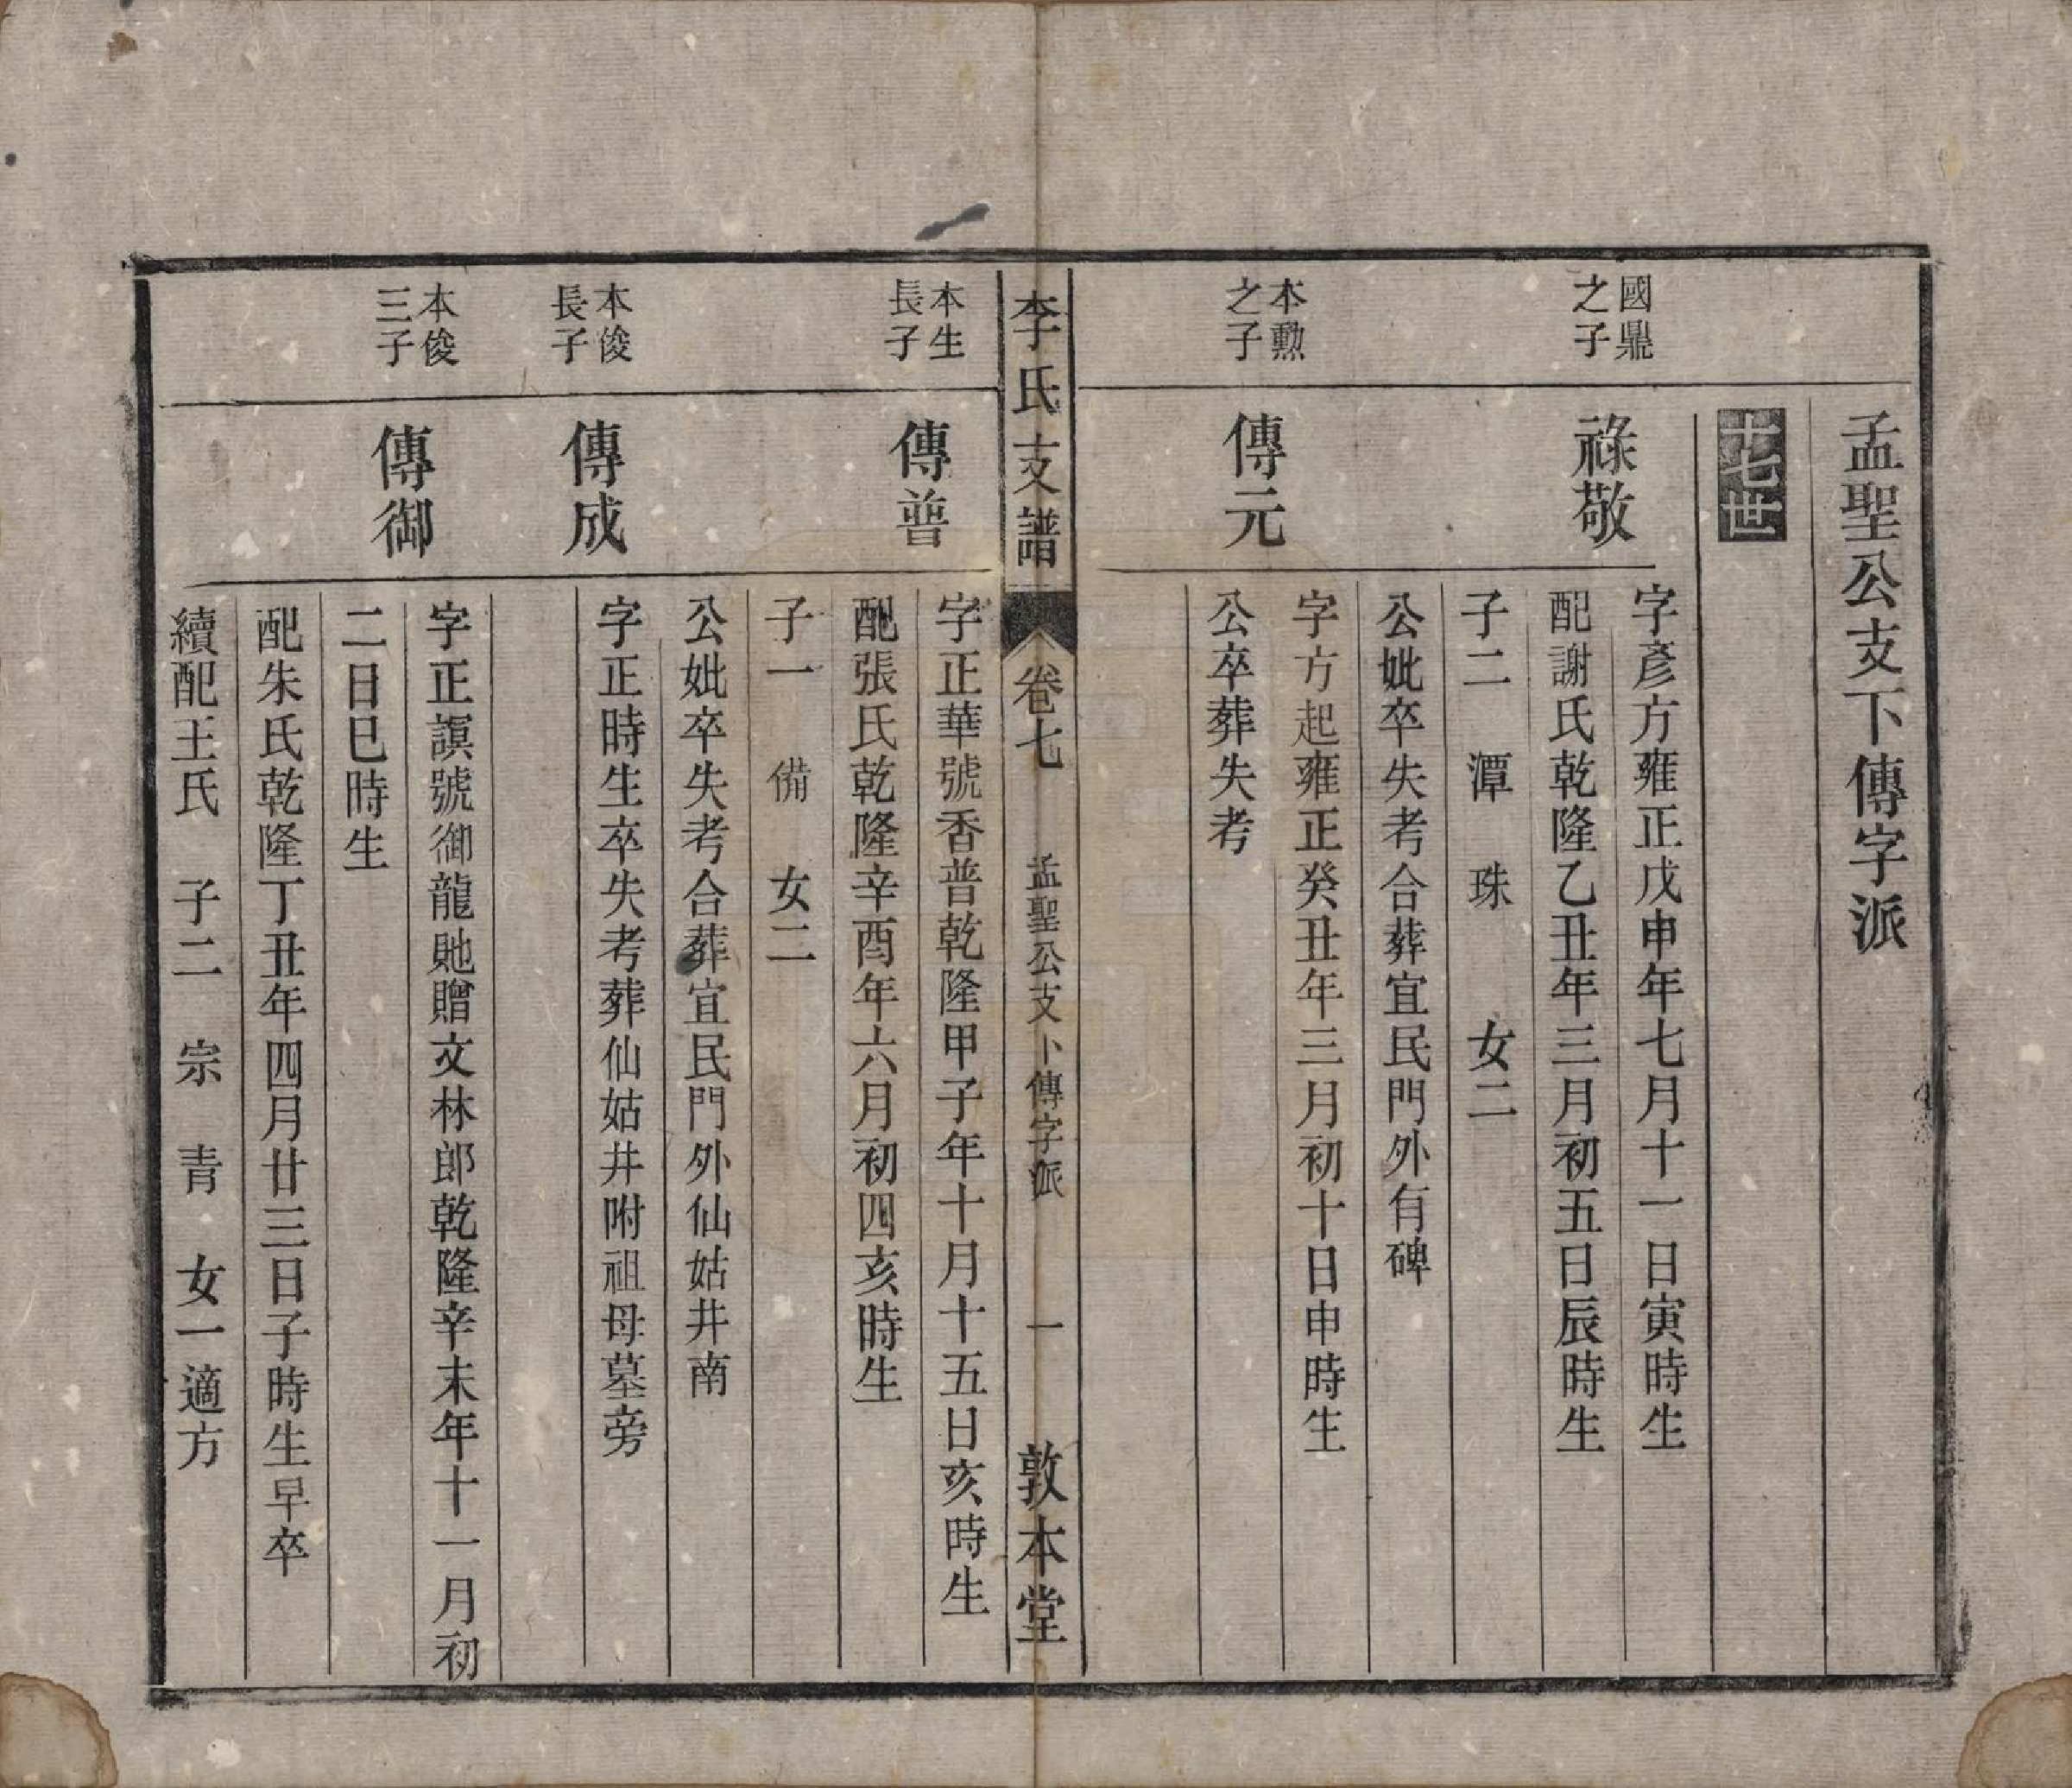 孟聖公支下傳字派
十七世
國鼎
之子
祿敬
字彥方雍正戊申年七月十一日寅時生
配謝氏乾隆乙丑年三月初五日辰時生
子二 潭 珠 女二
公妣卒失考合葬宜民門外有碑
本勳
之子
傳元
字方起雍正癸丑年三月初十日申時生
公卒葬失考
李氏支譜 卷七 孟聖公支下傳字派 一 敦本堂
本生
長子
傳普
字正華號香普乾隆甲子年十月十五日亥時生
配張氏乾隆辛酉年六月初四亥時生
子一 備 女二
公妣卒失考合葬宜民門外仙姑井南
本俊
長子
傳成
字正時生卒失考葬仙姑井附祖母墓旁
本俊
三子
傳御
字正謨號御龍貤贈文林郎乾隆辛未年十一月初
二日巳時生
配朱氏乾隆丁丑年四月廿三日子時生早卒
續配王氏 子二 宗 青 女一適方